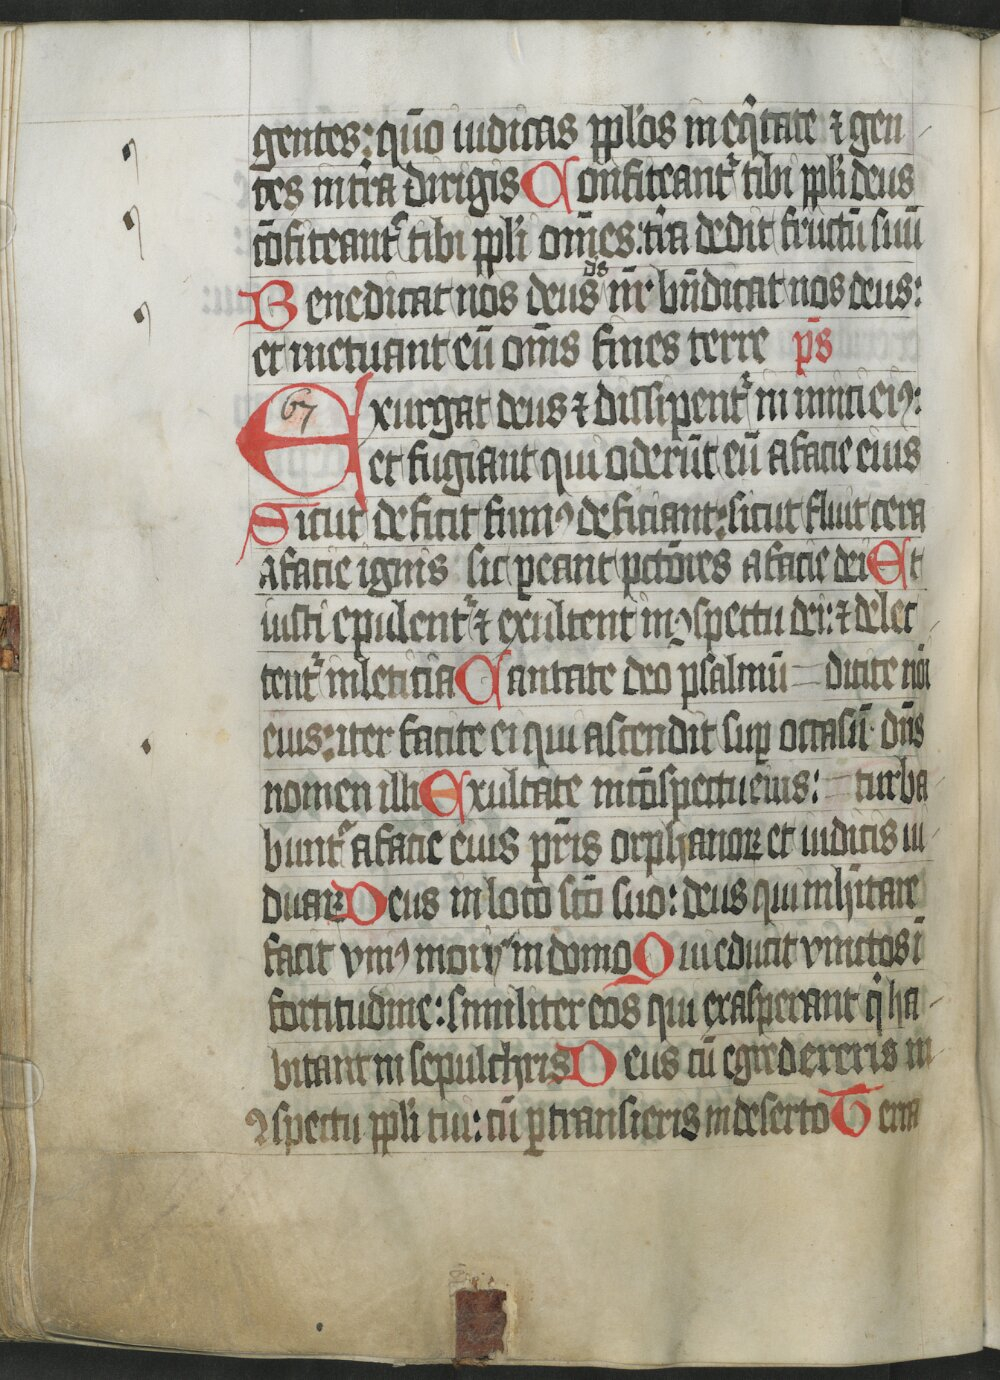 gentes: qm̄o iudicas pplos in eq̄itate ⁊ gen
tes in tr̄a dirigis Confiteant᷑ tibi ppli deus
cōfiteant᷑ tibi ppli om̄es: tr̄a dedit fructū suū
Benedicat nos deus ds nr̄ bn̄dicat nos deus:
et metuant eū om̄s fines terre ps̄
67 Exurgat deus ⁊ dissipent᷑ inimici eiꝰ:
et fugiant qui oderūt eū a facie eius
Sicut deficit fumꝰ deficiant: sicut fluit cera
a facie ignis sic ꝑeant pctōres a facie dei Et
iusti epulent᷑ ⁊ exultent in ꝯspectu dei: ⁊ delec
tent᷑ in leticia Cantate deo psalmū dicite nōi
eius: iter facite ei qui ascendit suꝑ occasū dn̄s
nomen illi Exultate in cōspectu eius: turba
bunt᷑ a facie eius pr̄is orphanoꝝ et iudicis ui
duaꝝ Deus in loco sc̄o suo: deus qui inhītare
facit vniꝰ moris in domo Qui educit vinctos ī
fortitudine: similiter eos qui exasperant q̄i ha
bitant in sepulchris Deus cū egredereris in
ꝯspectu ppli tui: cū ꝑtransieris in deserto Terra